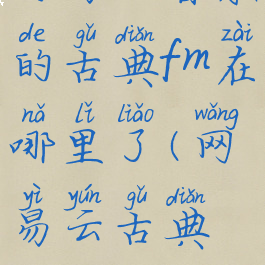 de gǔ diǎn zài
的古典fm在
nǎ lǐ liǎo wǎng
哪里了(网
yì yún gǔ diǎn
易云古典